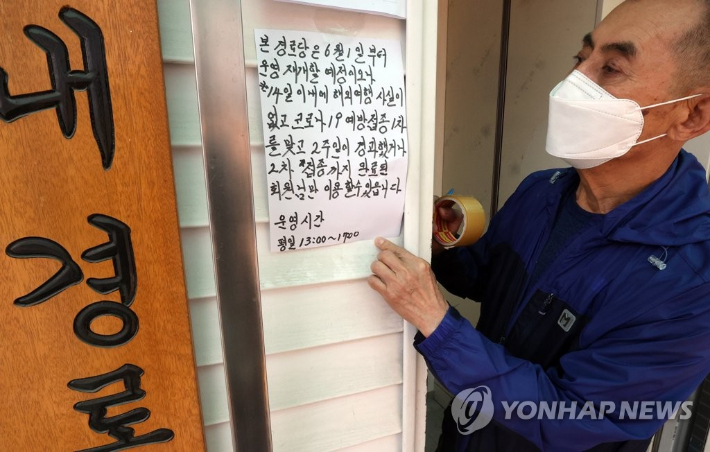 본 경로당은 6월1일 부터
운영 재개할 예정이오니
*14일 이내에 해외여행 사실이
없고 코로나19 예방접종 1차
를 맞고 2주일이 경과했거나
2차 접종까지 완료된
회원님만 이용할 수 있습니다
운영시간
평일 13:00~17:00
YONHAP NEWS